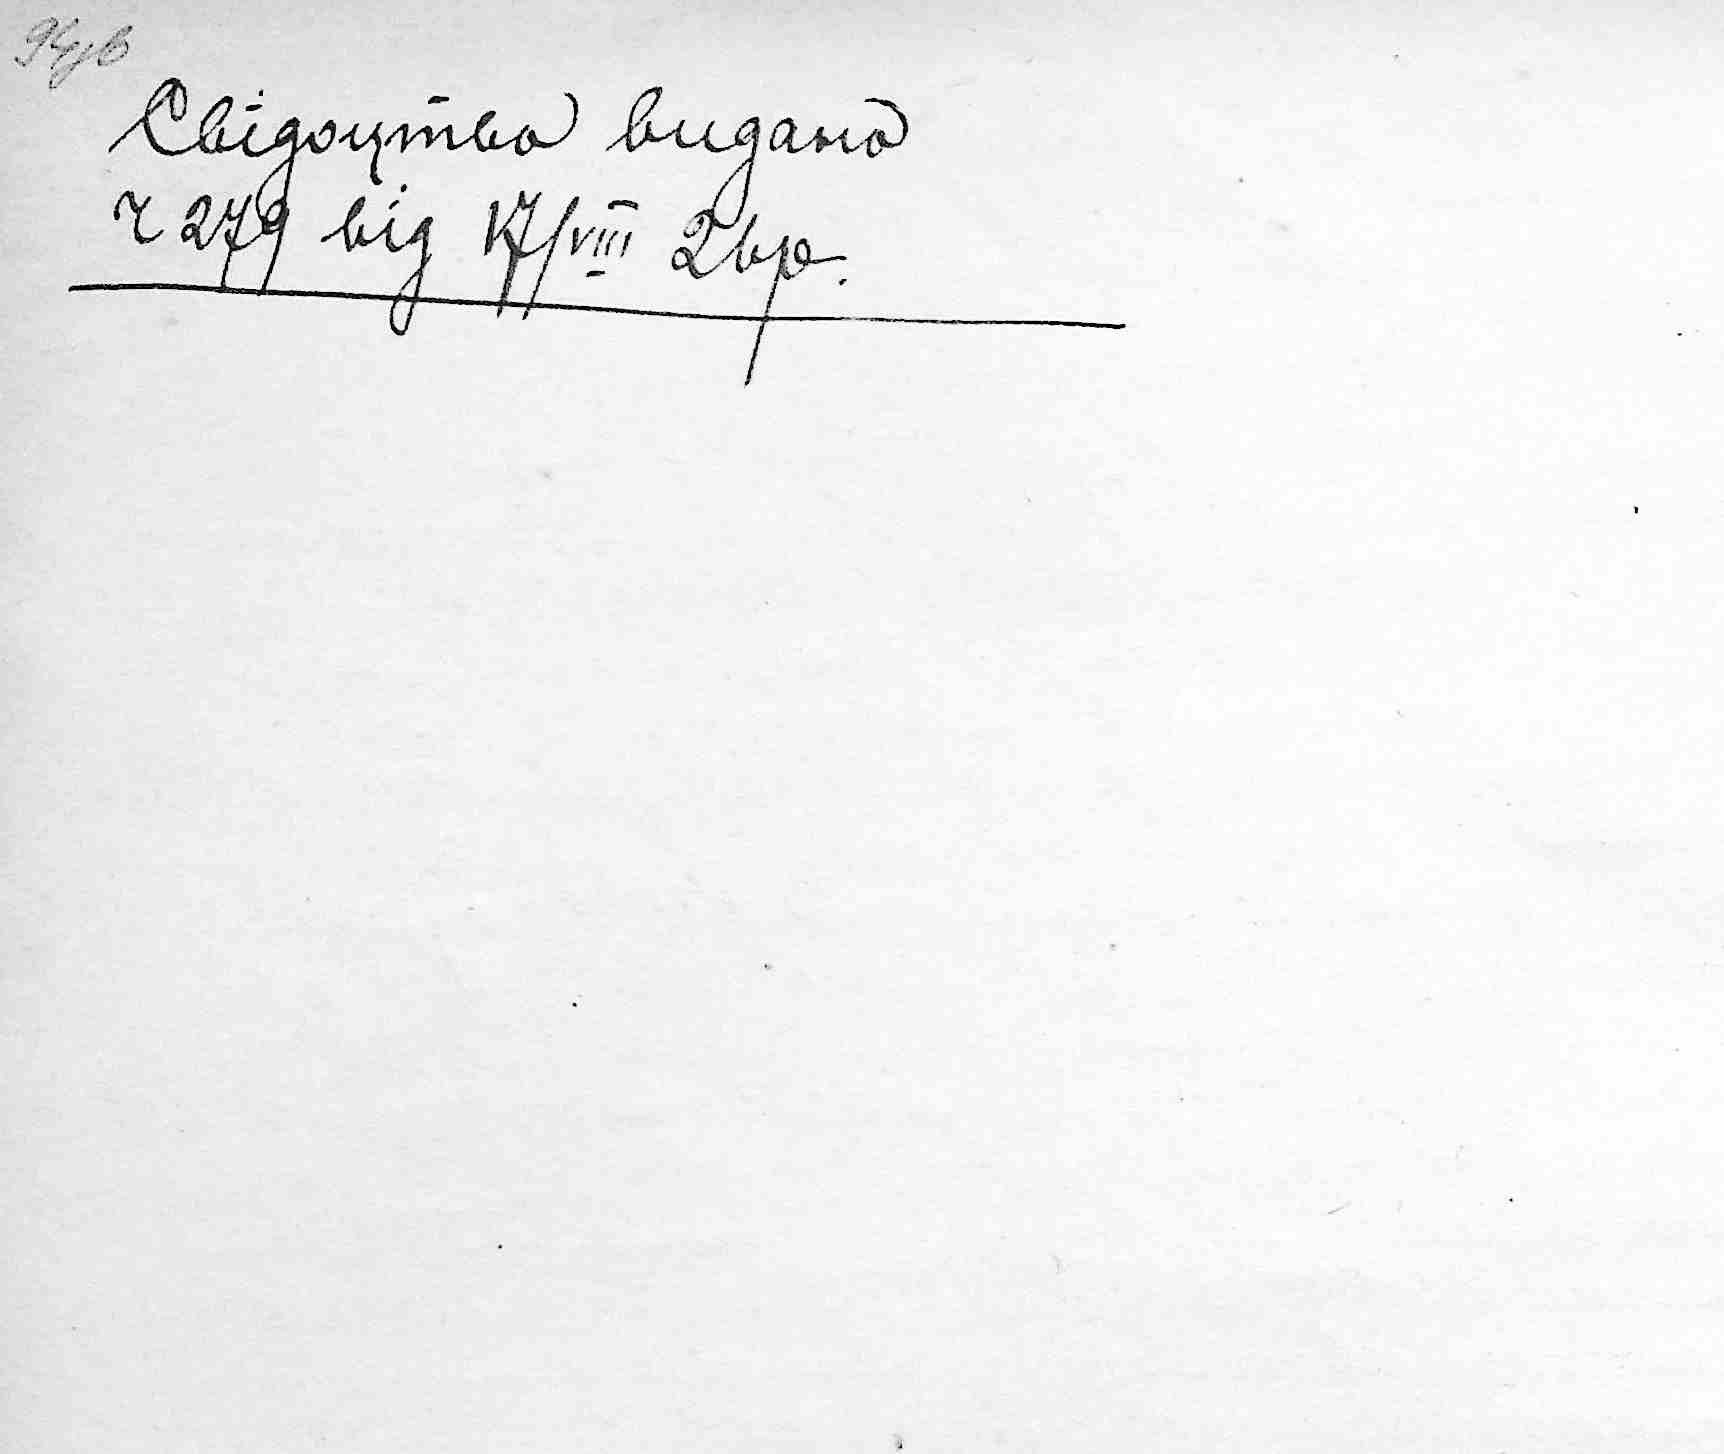 94зв
Свідоцтво видано
ч 279 від 17/VIII 2вр.